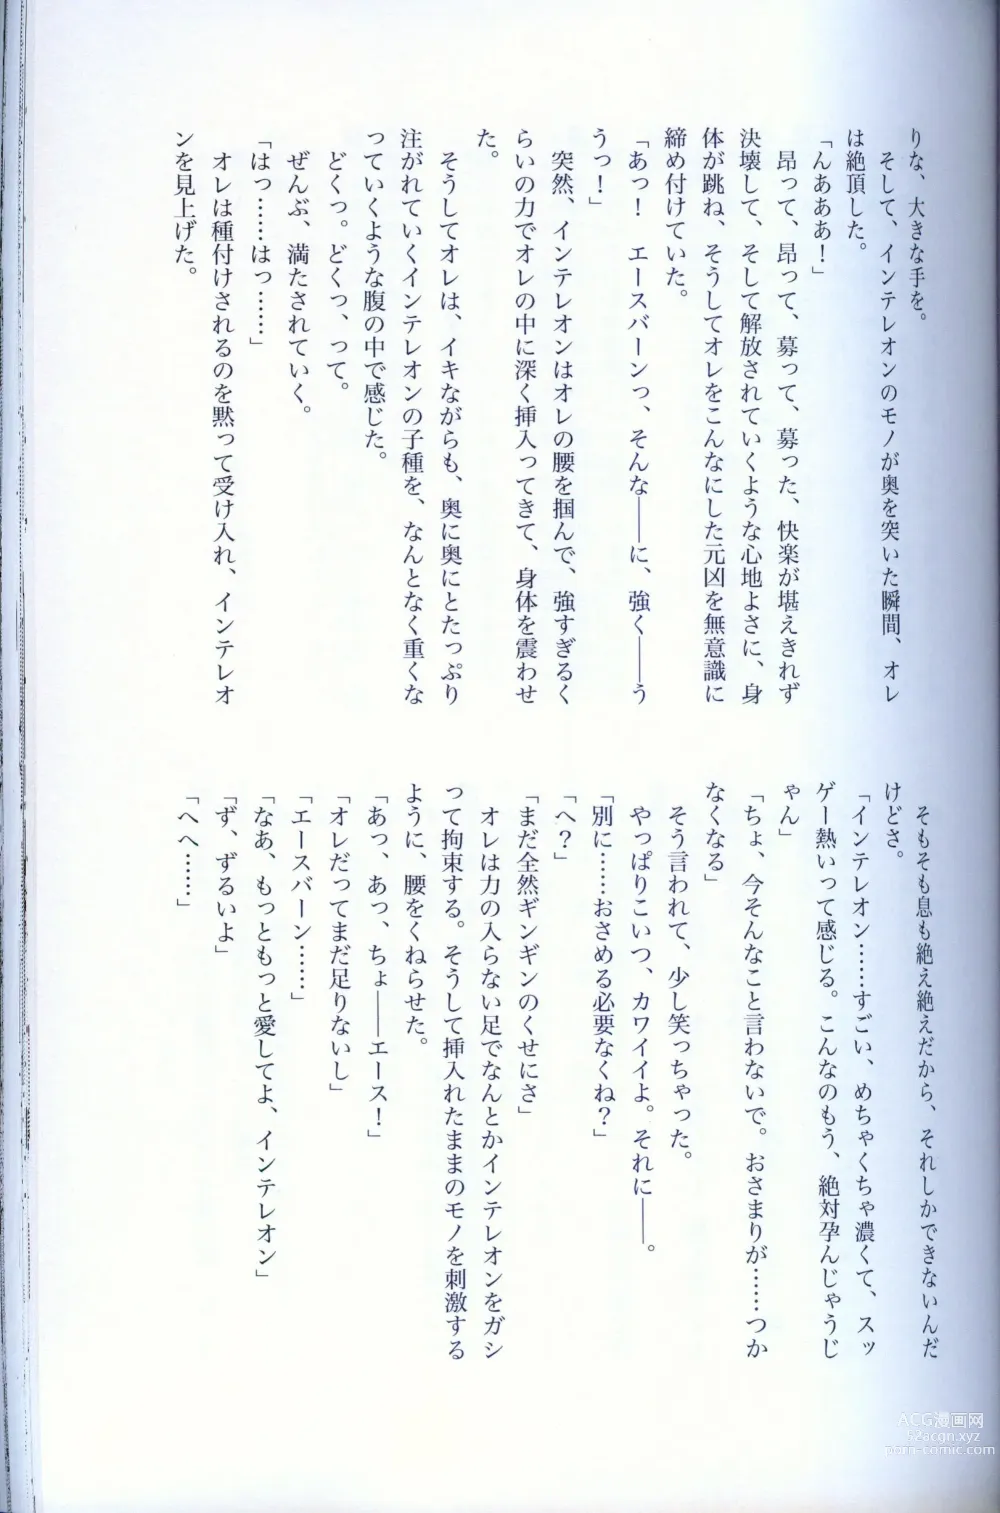 りな、大きな手を。
そして、インテレオンのモノが奥を突いた瞬間、オレ
は絶頂した。
「んあああ！」
昂って、昂って、募って、募った、快楽が堪えきれず
決壊して、そして解放されていくような心地よさに、身
体が跳ね、そうしてオレをこんなにした元凶を無意識に
締め付けていた。
「あっ！　エースバーンっ、そんな――に、強く――う
うっ！」
突然、インテレオンはオレの腰を掴んで、強すぎるく
らいの力でオレの中に深く挿入ってきて、身体を震わせ
た。
そうしてオレは、イキながらも、奥に奥にとたっぷり
注がれていくインテレオンの子種を、なんとなく重くな
っていくような腹の中で感じた。
どくっ。どくっ、って。
ぜんぶ、満たされていく。
「はっ……はっ……」
オレは種付けされるのを黙って受け入れ、インテレオ
ンを見上げた。
そもそも息も絶え絶えだから、それしかできないんだ
けどさ。
「インテレオン……すごい、めちゃくちゃ濃くて、スッ
ゲー熱いって感じる。こんなのもう、絶対孕んじゃうじ
ゃん」
「ちょ、今そんなこと言わないで。おさまりが……つか
なくなる」
そう言われて、少し笑っちゃった。
やっぱりこいつ、カワイイよ。それに――。
「別に……おさめる必要なくね？」
「へ？」
「まだ全然ギンギンのくせにさ」
オレは力の入らない足でなんとかインテレオンをガシ
って拘束する。そうして挿入れたままのモノを刺激する
ように、腰をくねらせた。
「あっ、あっ、ちょ――エース！」
「オレだってまだ足りないし」
「エースバーン……」
「なあ、もっともっと愛してよ、インテレオン」
「ず、ずるいよ」
「へへ……」
ACG漫画网
52acgn.xyz
porn-comic.com